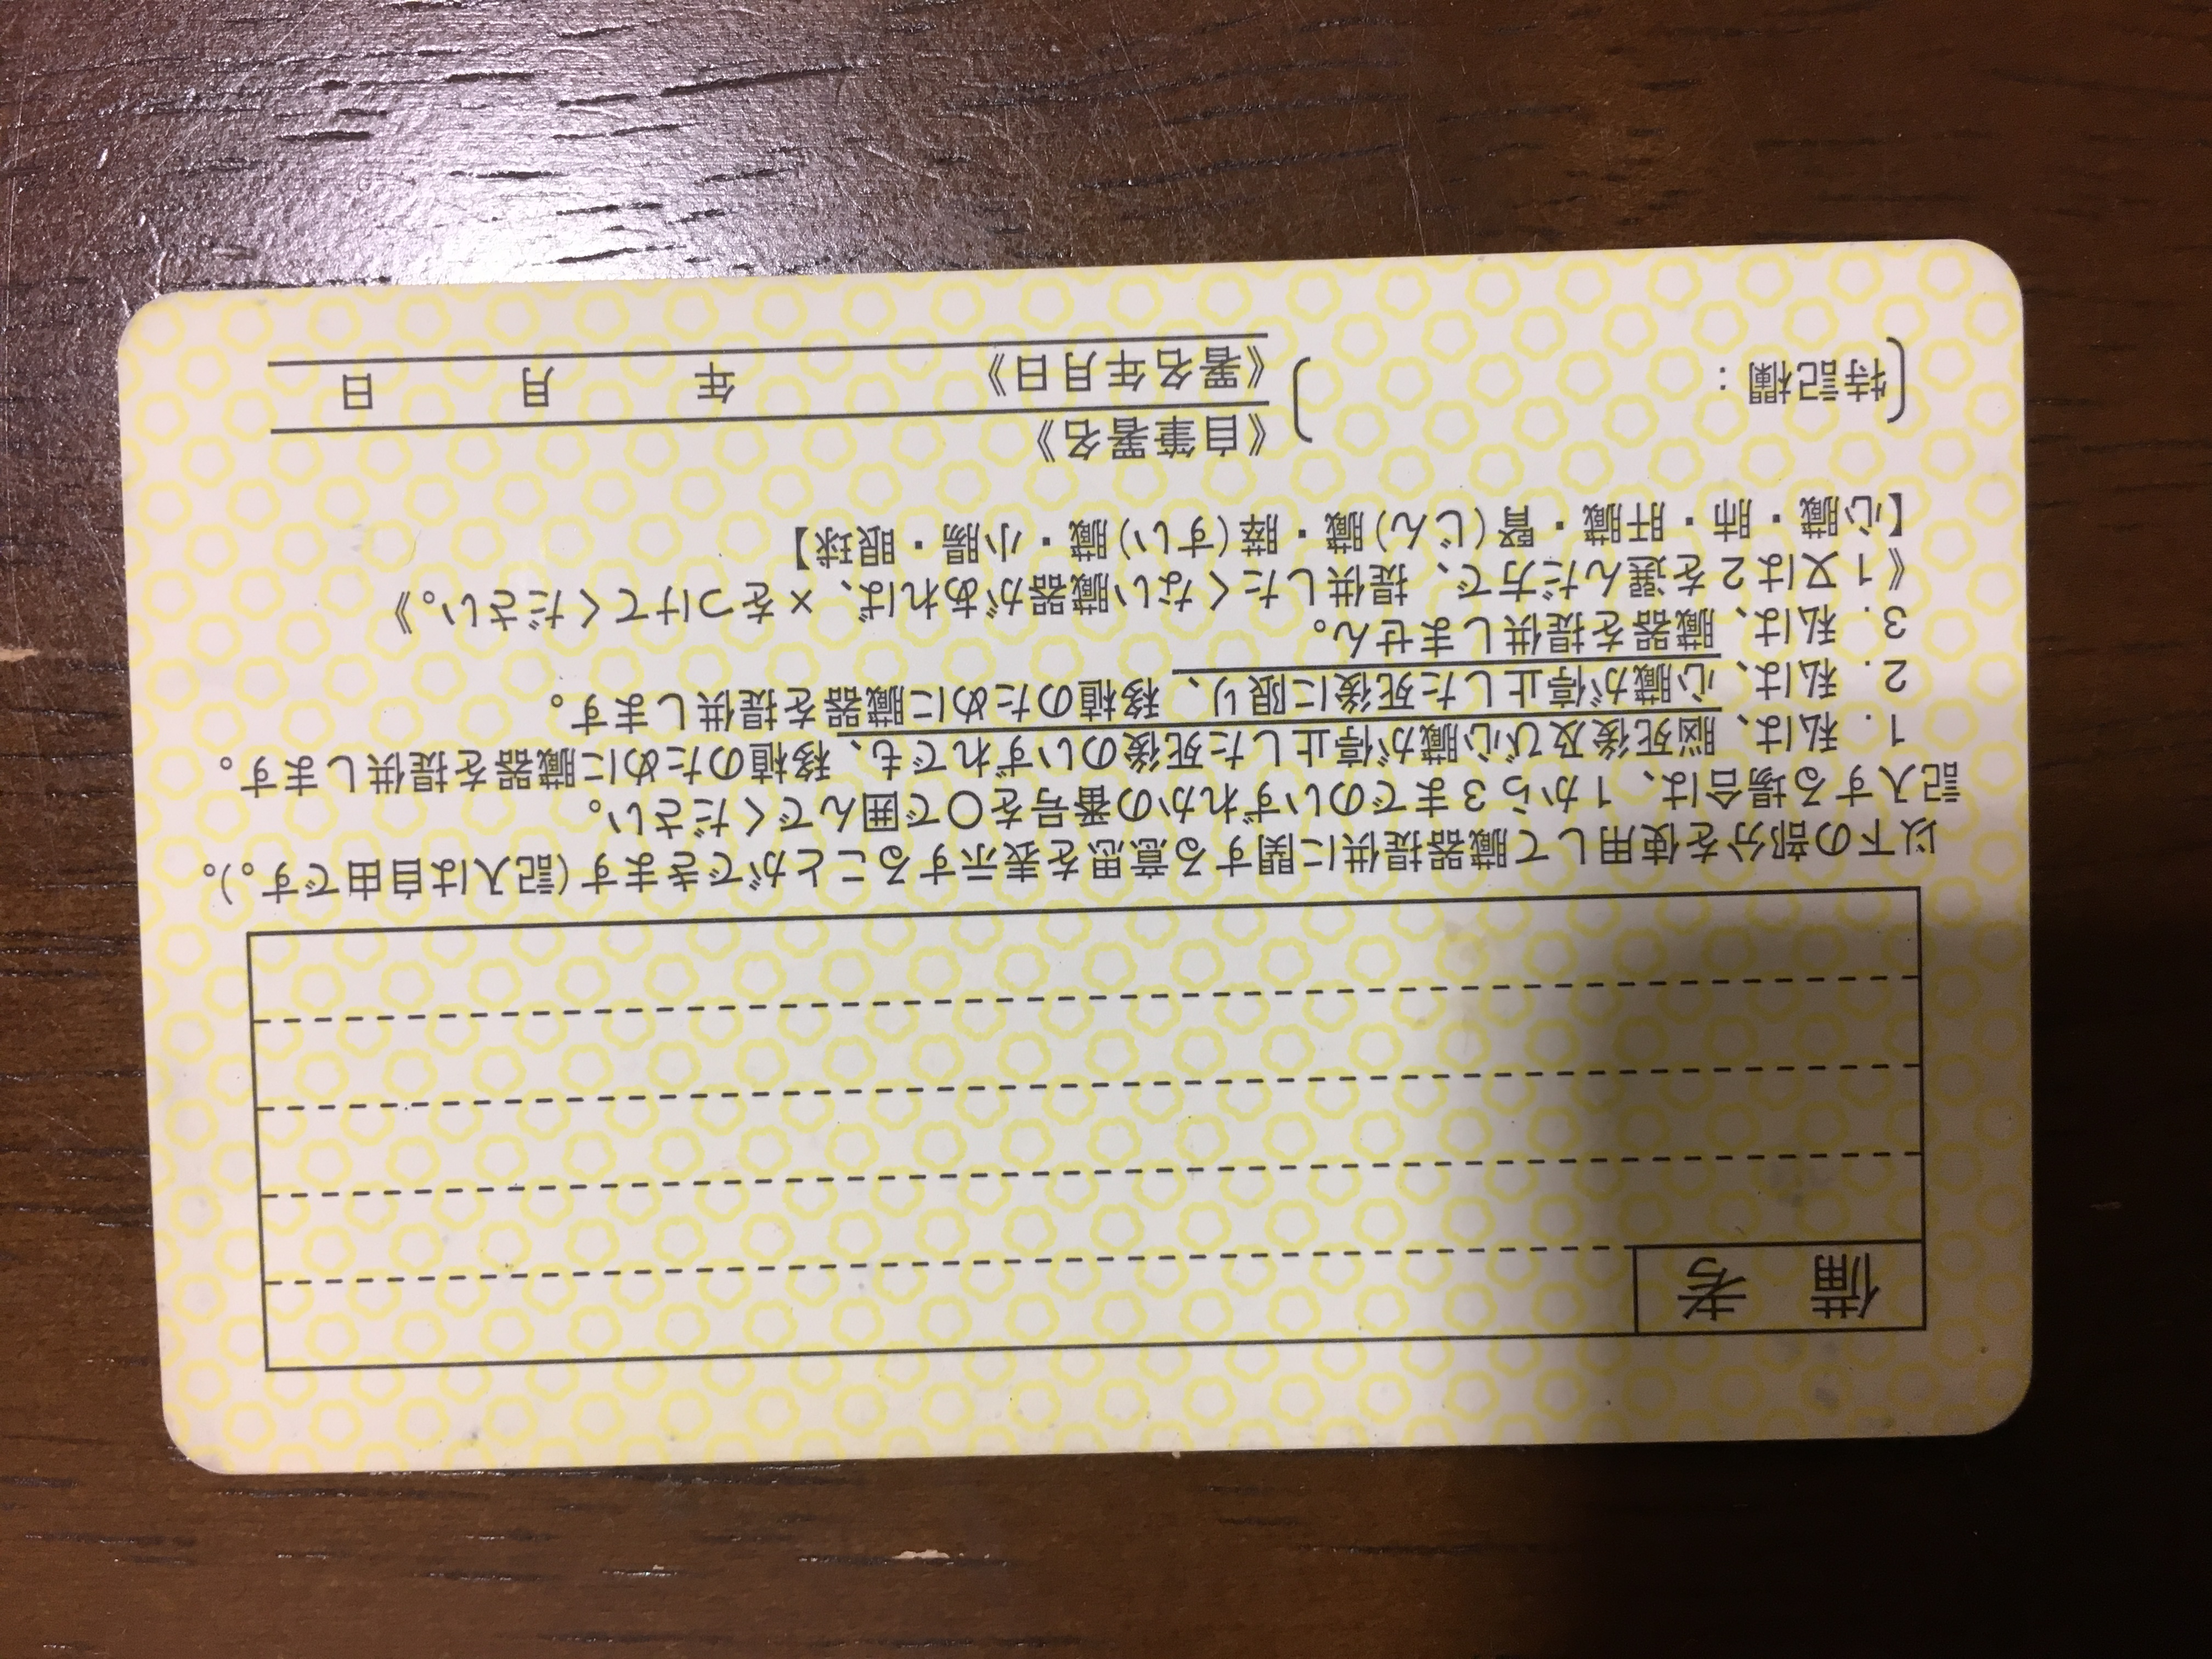 備考
以下の部分を使用して臓器提供に関する意思を表示することができます(記入は自由です。)。
記入する場合は、1から3までのいずれかの番号を〇で囲んでください。
1. 私は、脳死後及び心臓が停止した死後のいずれでも、移植のために臓器を提供します。
2. 私は、心臓が停止した死後に限り、移植のために臓器を提供します。
3. 私は、臓器を提供しません。
《1又は2を選んだ方で、提供したくない臓器があれば、×をつけてください。》
【心臓・肺・肝臓・腎(じん)臓・膵(すい)臓・小腸・眼球】
〔特記欄: 〕《自筆署名》
《署名年月日》 年 月 日